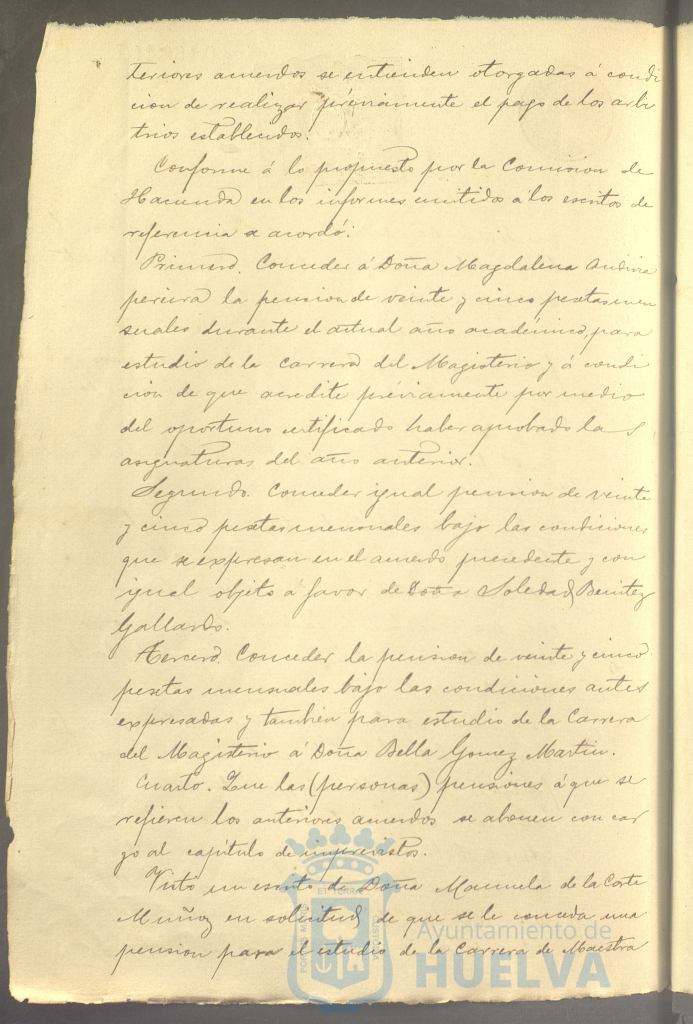 teriores acuerdos se entienden otorgadas á condi
cion de realizar préviamente el pago de los arbi
trios establecidos.
Conforme á lo propuesto por la Comision de
Hacienda en los informes emitidos á los escritos de
referencia se acordó:
Primero. Conceder á Doña Magdalena
la pension de veinte y cinco pesetas men
suales durante el actual año académico, para
estudio de la carrera del Magisterio y á condi
cion de que acredite préviamente por medio
del oportuno certificado haber aprobado las
asignaturas del año anterior.
Segundo. Conceder igual pension de veinte
y cinco pesetas mensuales bajo las condiciones
que se expresan en el acuerdo precedente y con
igual objeto a favor de Doña Soledad Benitez
Gallardo.
Tercero. Conceder la pension de veinte y cinco
pesetas mensuales bajo las condiciones antes
expresadas y tambien para estudio de la Carrera
del Magisterio á Doña Bella Gomez Martin.
Cuarto. Que las (personas) pensiones á que se
refieren los anteriores acuerdos se abonen con car
go al capítulo de imprevistos.
Visto un escrito de Doña Manuela de la Corte
Muñoz en solicitud de que se le conceda una
pension para el estudio de la Carrera de Maestra
Ayuntamiento de
HUELVA